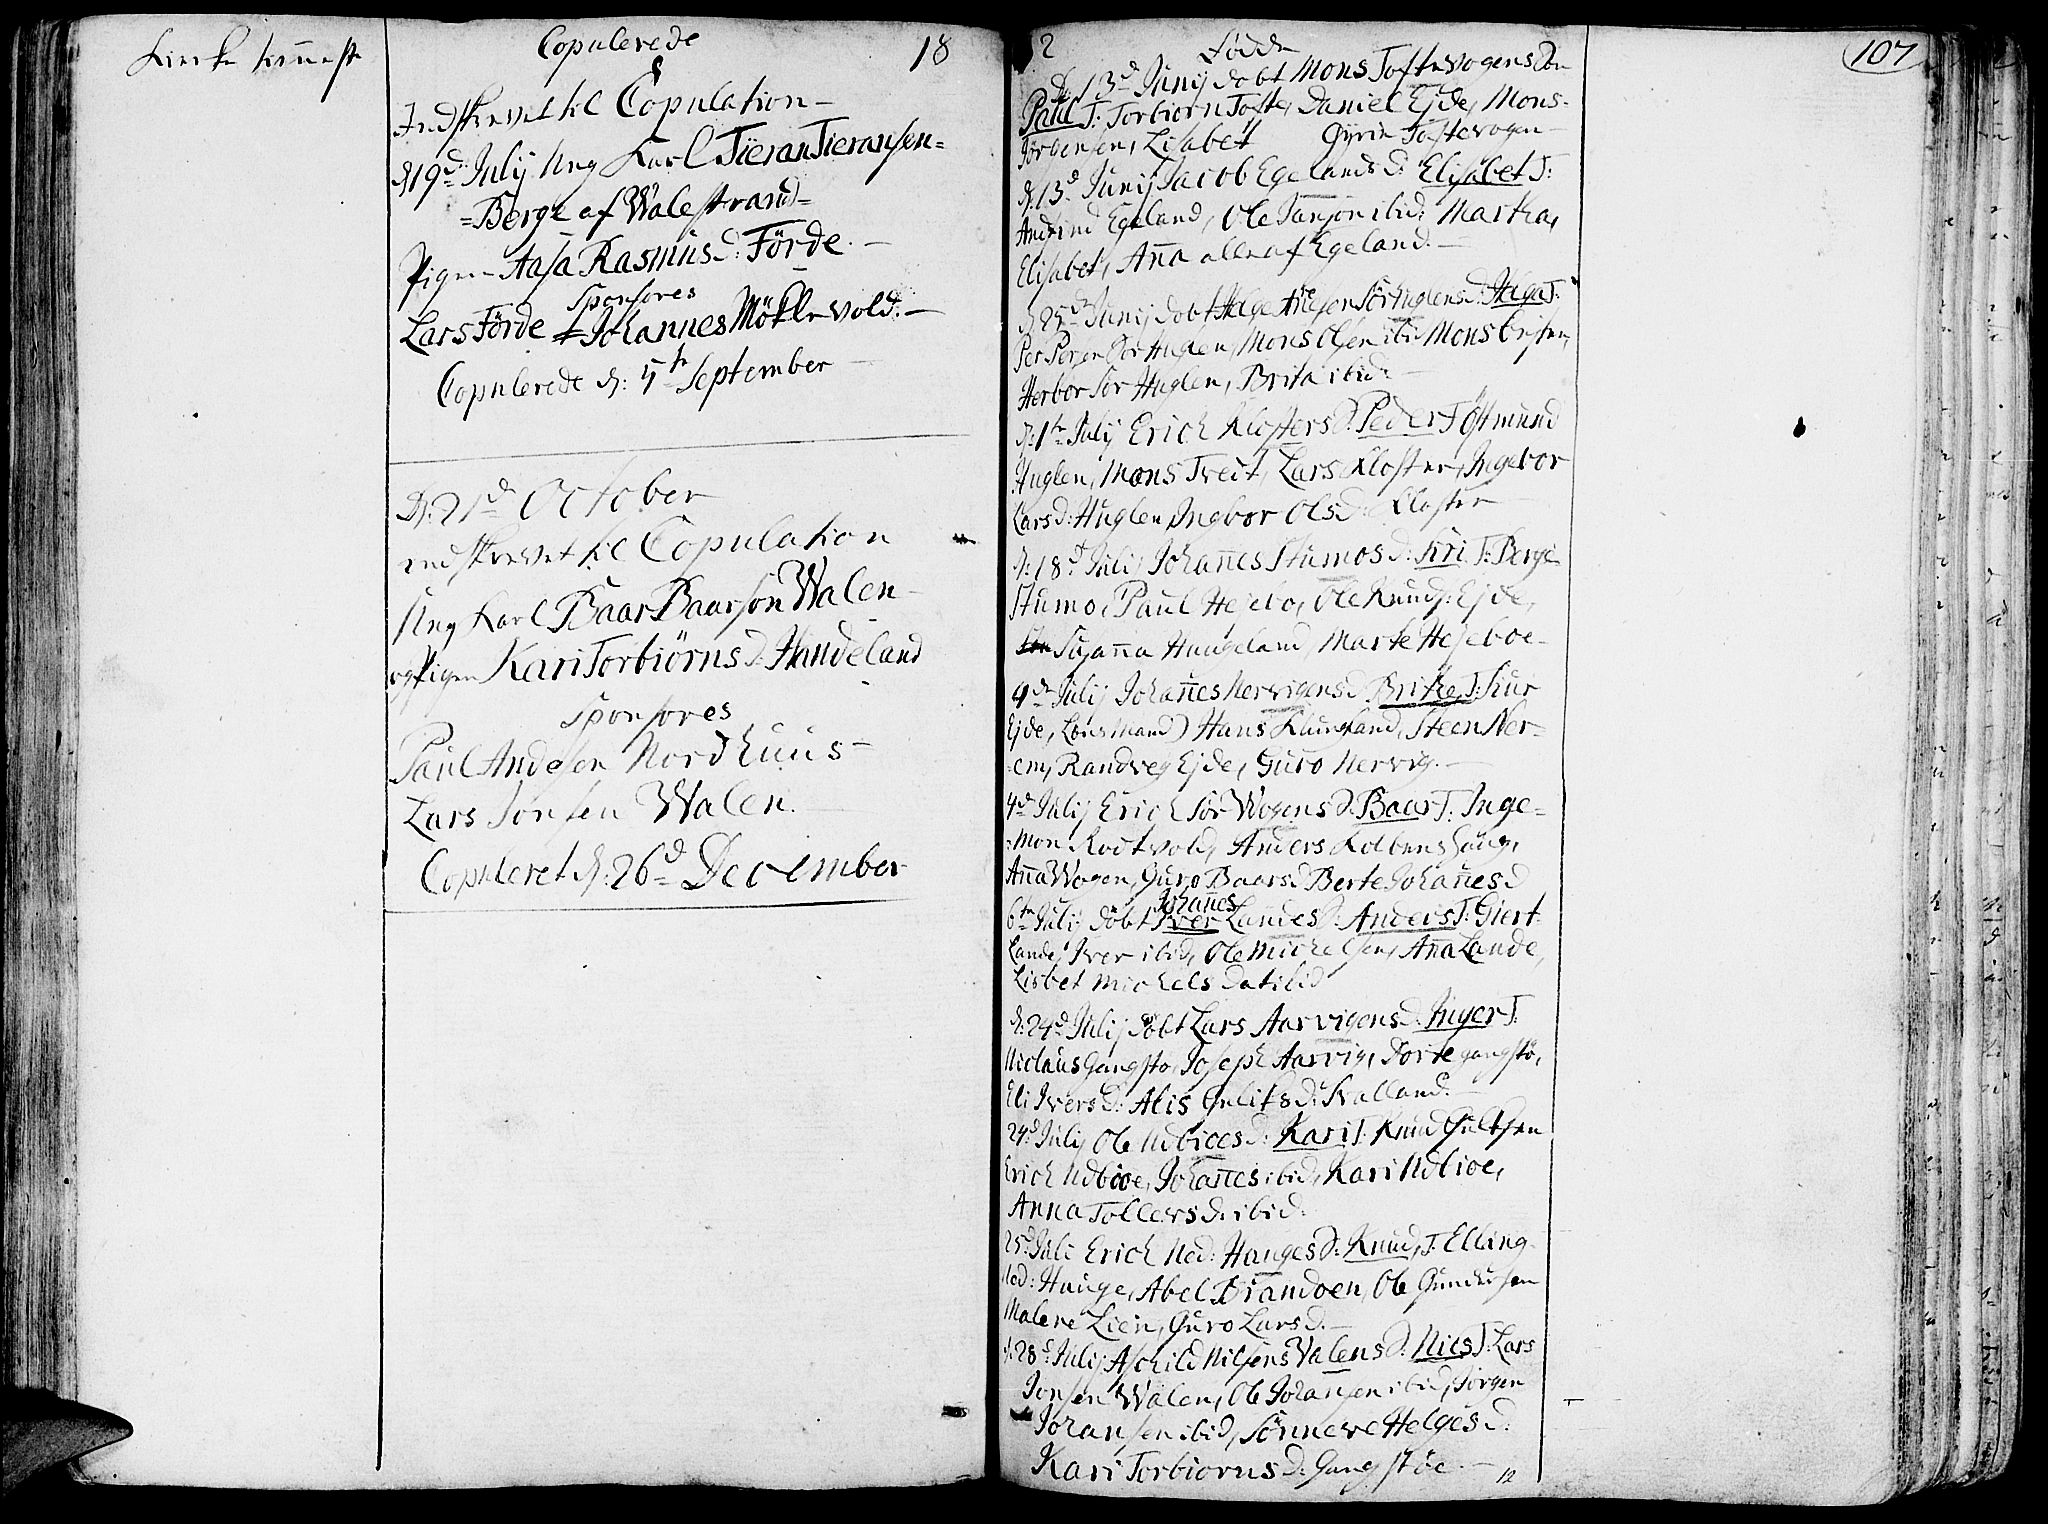 Kircke tienneste
Copulerede
18
Indskrevet til Copulation
d: 19d: Julij Ung Karl Tieran Tieransen
Berge af Walestrand
Pigen Aasa Rasmus d: Förde
Sponsores
Lars Förde Johannes Möklevold
Copulerede d: 5te September
D: 21d October
indskrevet til Copulation
Ung Karl Baar Baarson Walen
og Pigen Kari Torbiörns d: Handeland
Sponsores
Paul Andesen Nordhuus
Lars Jonsen Walen
Copuleret d: 26d December
2
Födde
107
D: 13d Junij döbt Mons Toftevogens Sön
Paul T: Torbiorn Tofte, Daniel Ejde, Mons
Jörgensen, Lisabet Gyrie Toftevogen
d: 13d Junij Jacob Egelands d: Elisabet T:
Andfind Egeland, Ole ibid: Martha,
Elisabet, Anna alle af Egeland
d: 25de Junij döbt Helge Sörhuglens d: Helga T:
Per Sör Huglen, Mons Olsen ibid Mons
Herbor Sör Huglen, Brita ibid:
d: 1te Julij Erich Klosters d: Peder T: Östmund
Huglen, Mons Treit, Lars Kloster, Ingebor
Lars d: Huglen, Ingbor Ols d: Kloster
d: 18d Julij Johannes Stumos d: Kri T: Berge
Stumo, Paul Hejebo, Ole Knuds: Ejde,
Susanna Haugeland, Marte Hejeboe
4de Julij Johannes Nervigens d: Brithe T: Siur
Ejde, Löusmand) Hans Steen Ner-
em, Randveg Ejde, Guro Nervig.
4d Julij Erich Sör Wogens d: Baar T: Inge-
mon Rodtvold, Anders Kolbenshaug,
Anna Wogen, Guro Baars d Berte Johannes d
Johanes
6te Julij döbt Iver Landes d: Anders T: Giert
Lande, Iver ibid, Ole Michelsen, Anna Lande,
Lisbet Michels dat ibid
d: 24d Julij döbt Lars Aarvigens d: Inger T:
Niclaus Gangstö, Joseph Aarvig, Dorte gangstö,
Eli Ivers d: Alis d: Kalland.
24d Julij Ole Udbioes d: Kari T: Knud
Erich Udbioe, Johannes ibid, Kari Udbioe,
Anna Tollevs d: ibid:
25d Juli Erich Ned: Hauges d: Knud, T: Elling
Ned: Hauge, Abel Brandoen, Ole Gundersen
Malene Lien, Guro Lars d.
d: 28d Julij Aschild Nilsens Walens d: Nies T: Lars
Jonsen Walen, Ole Johansen ibid, Jörgen
Johansen ibid, Sönneve Helges d:
Kari Torbiorns d: Gangstöe
12